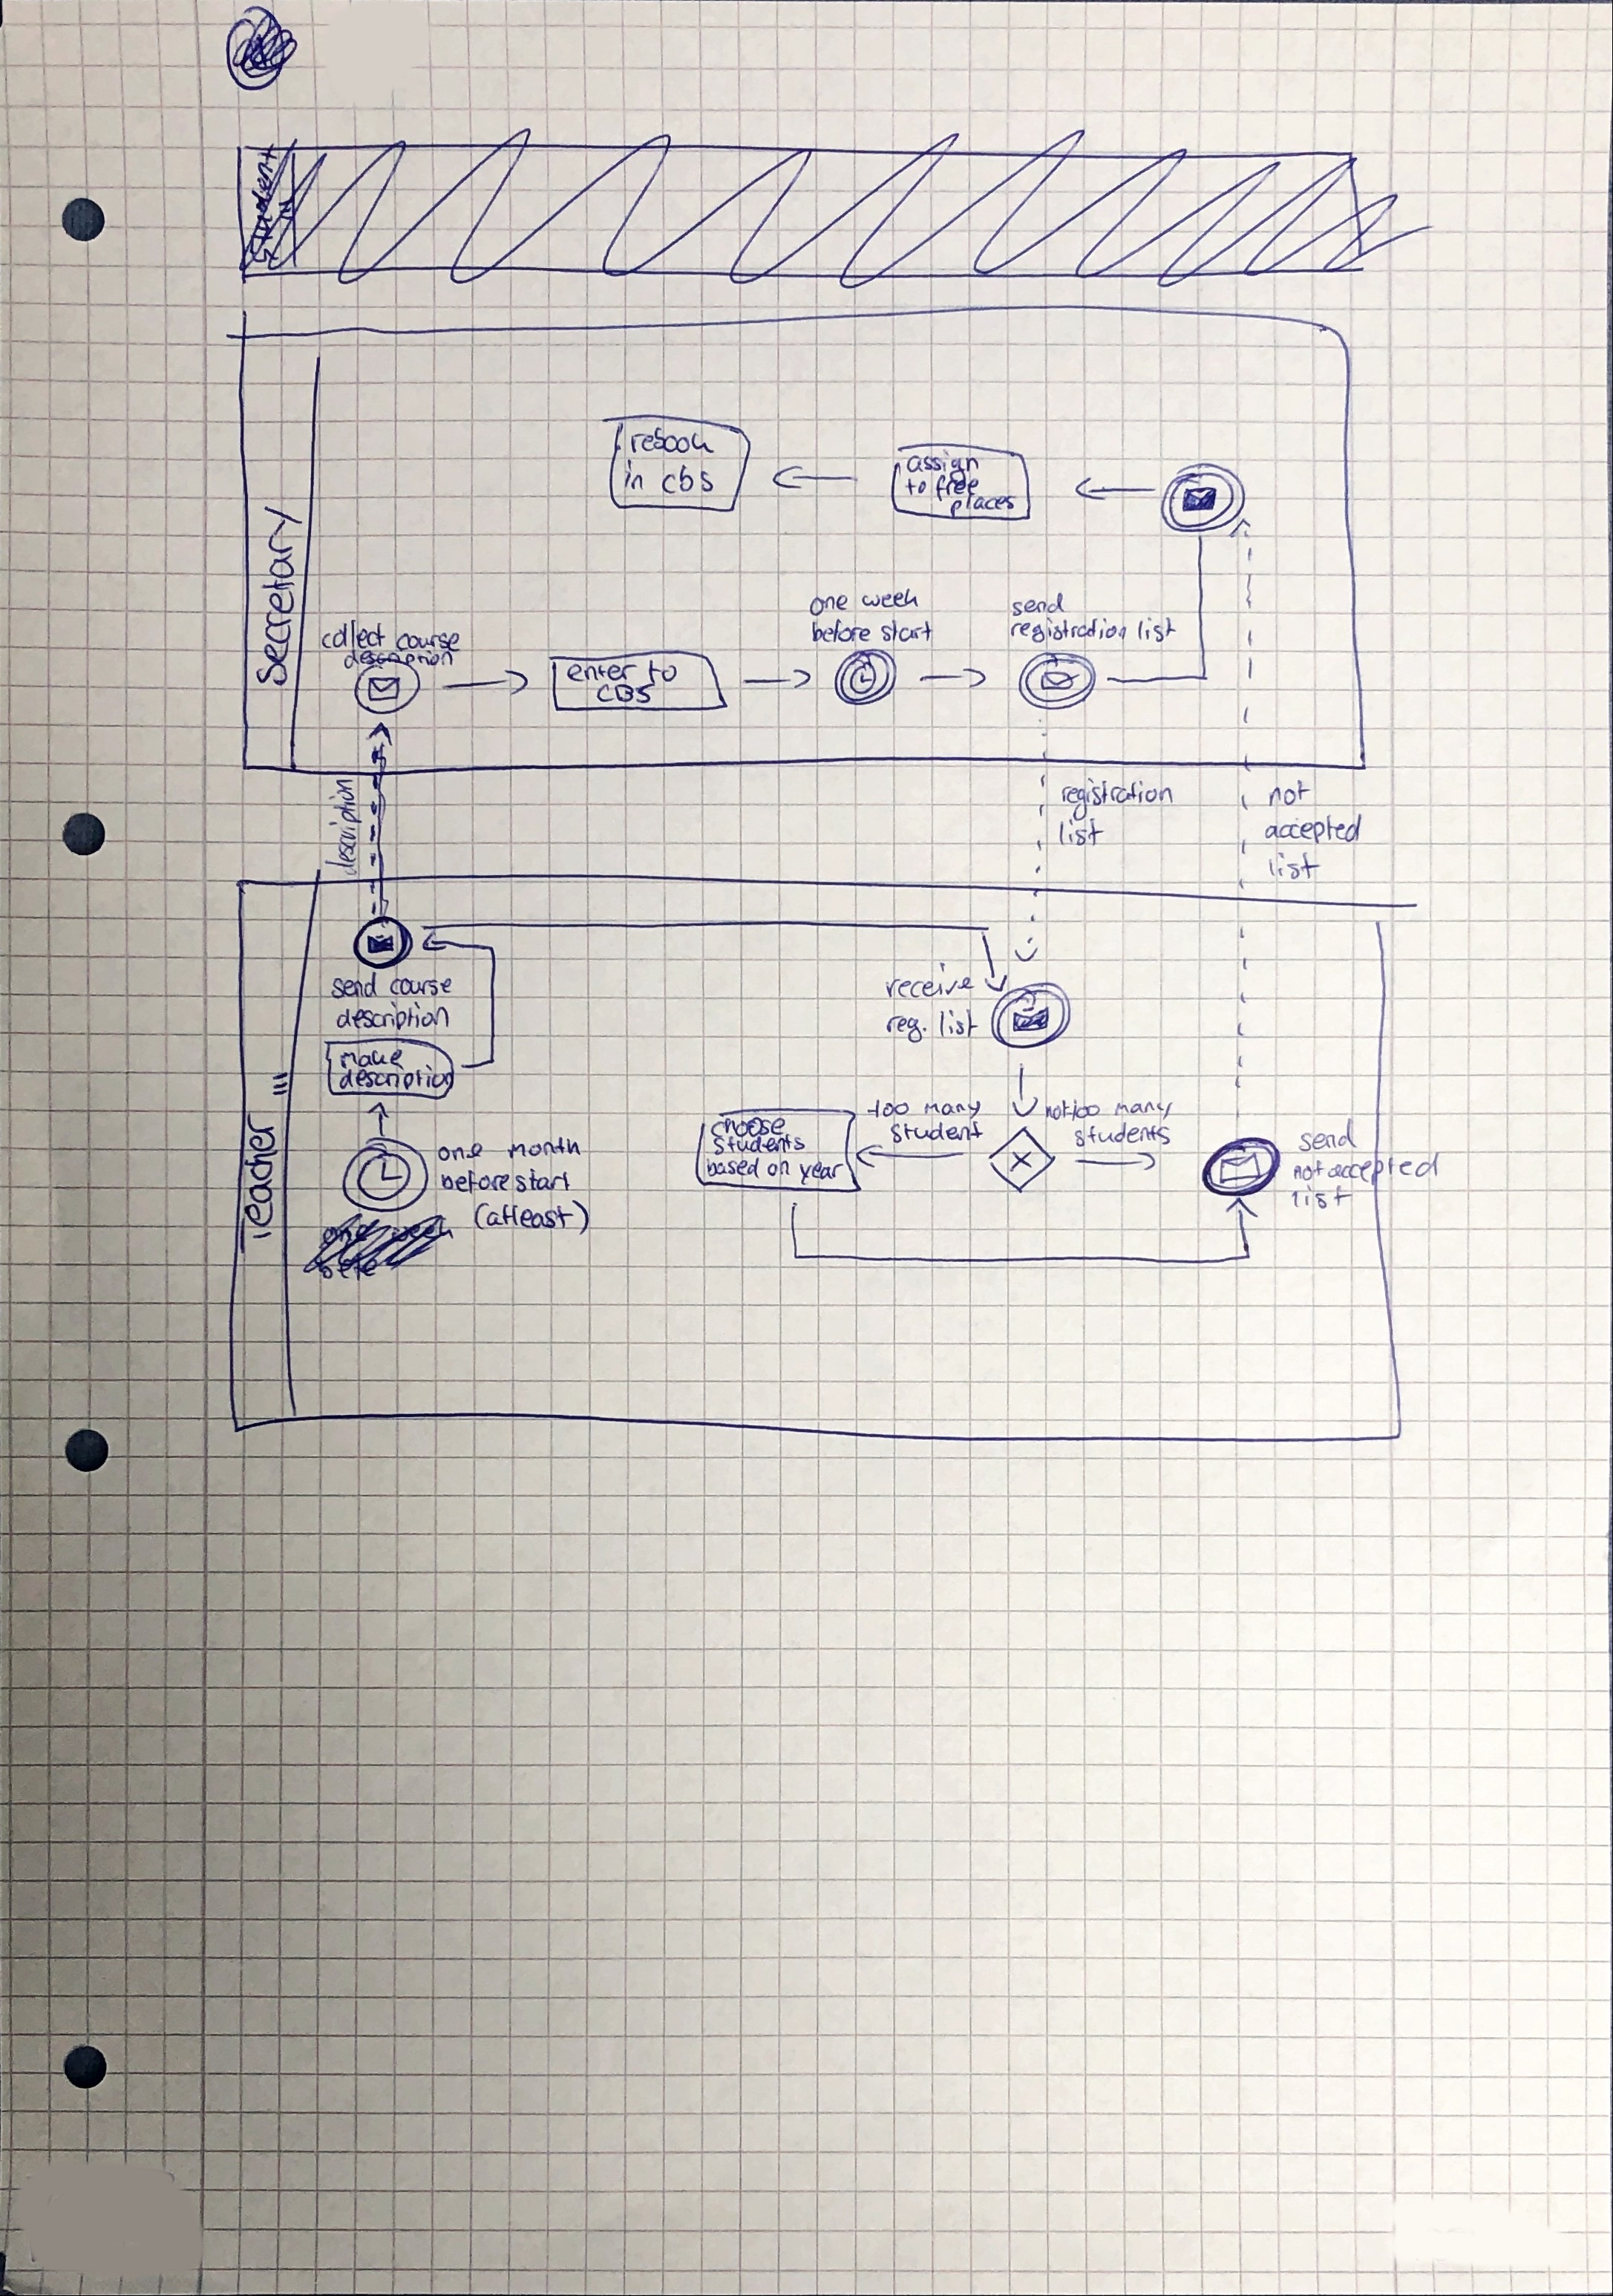 Student
Secretary
rebook
in cbs
assign
to free
places
one week
before start
send
registration list
collect course
description
enter to
CBS
description
registration
list
not
accepted
list
Teacher
send course
description
make
description
one month
before start
(atleast)
receive
reg. list
too many
student
not too many
students
choose
students
based on year
send
not accepted
list